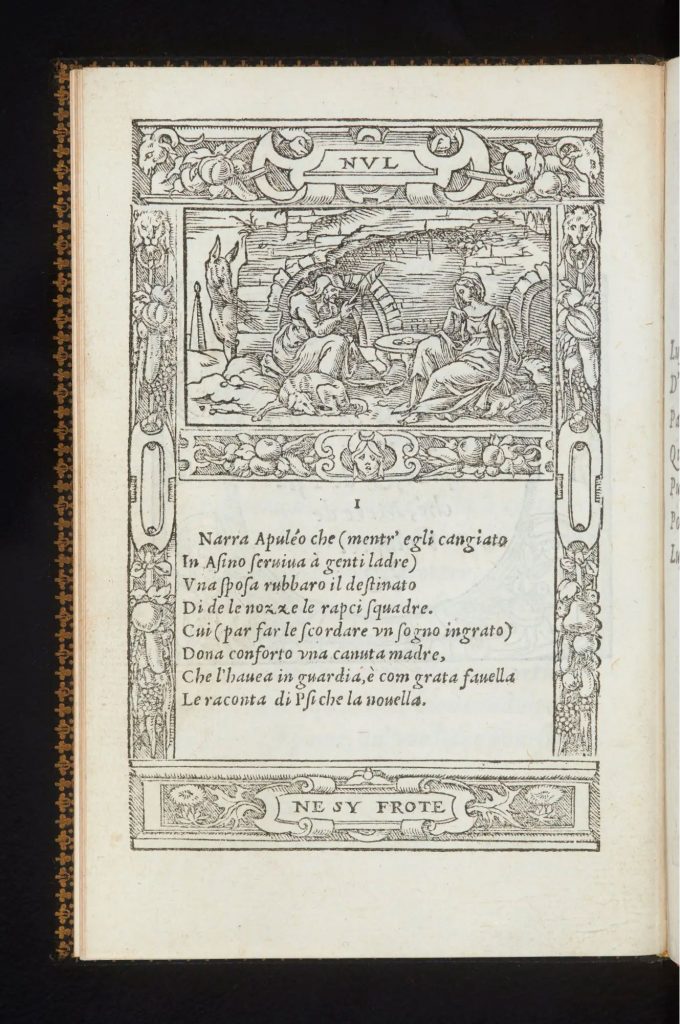 NVL
I
Narra Apuléo che (mentr' egli cangiato
In Asino seruiua à genti ladre)
Vna sposa rubbaro il destinato
Di de le nozze le rapci squadre.
Cui (par far le scordare vn sogno ingrato)
Dona conforto vna canuta madre,
Che l'hauea in guardia, è com grata fauella
Le raconta di Psiche la nouella.
NE SY FROTE